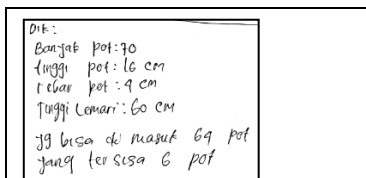 Dik:
Banyak pot: 70
tinggi pot: 16 cm
lebar pot: 9 cm
Tinggi Lemari: 60 cm
yg bisa di masuk 64 pot
yang tersisa 6 pot